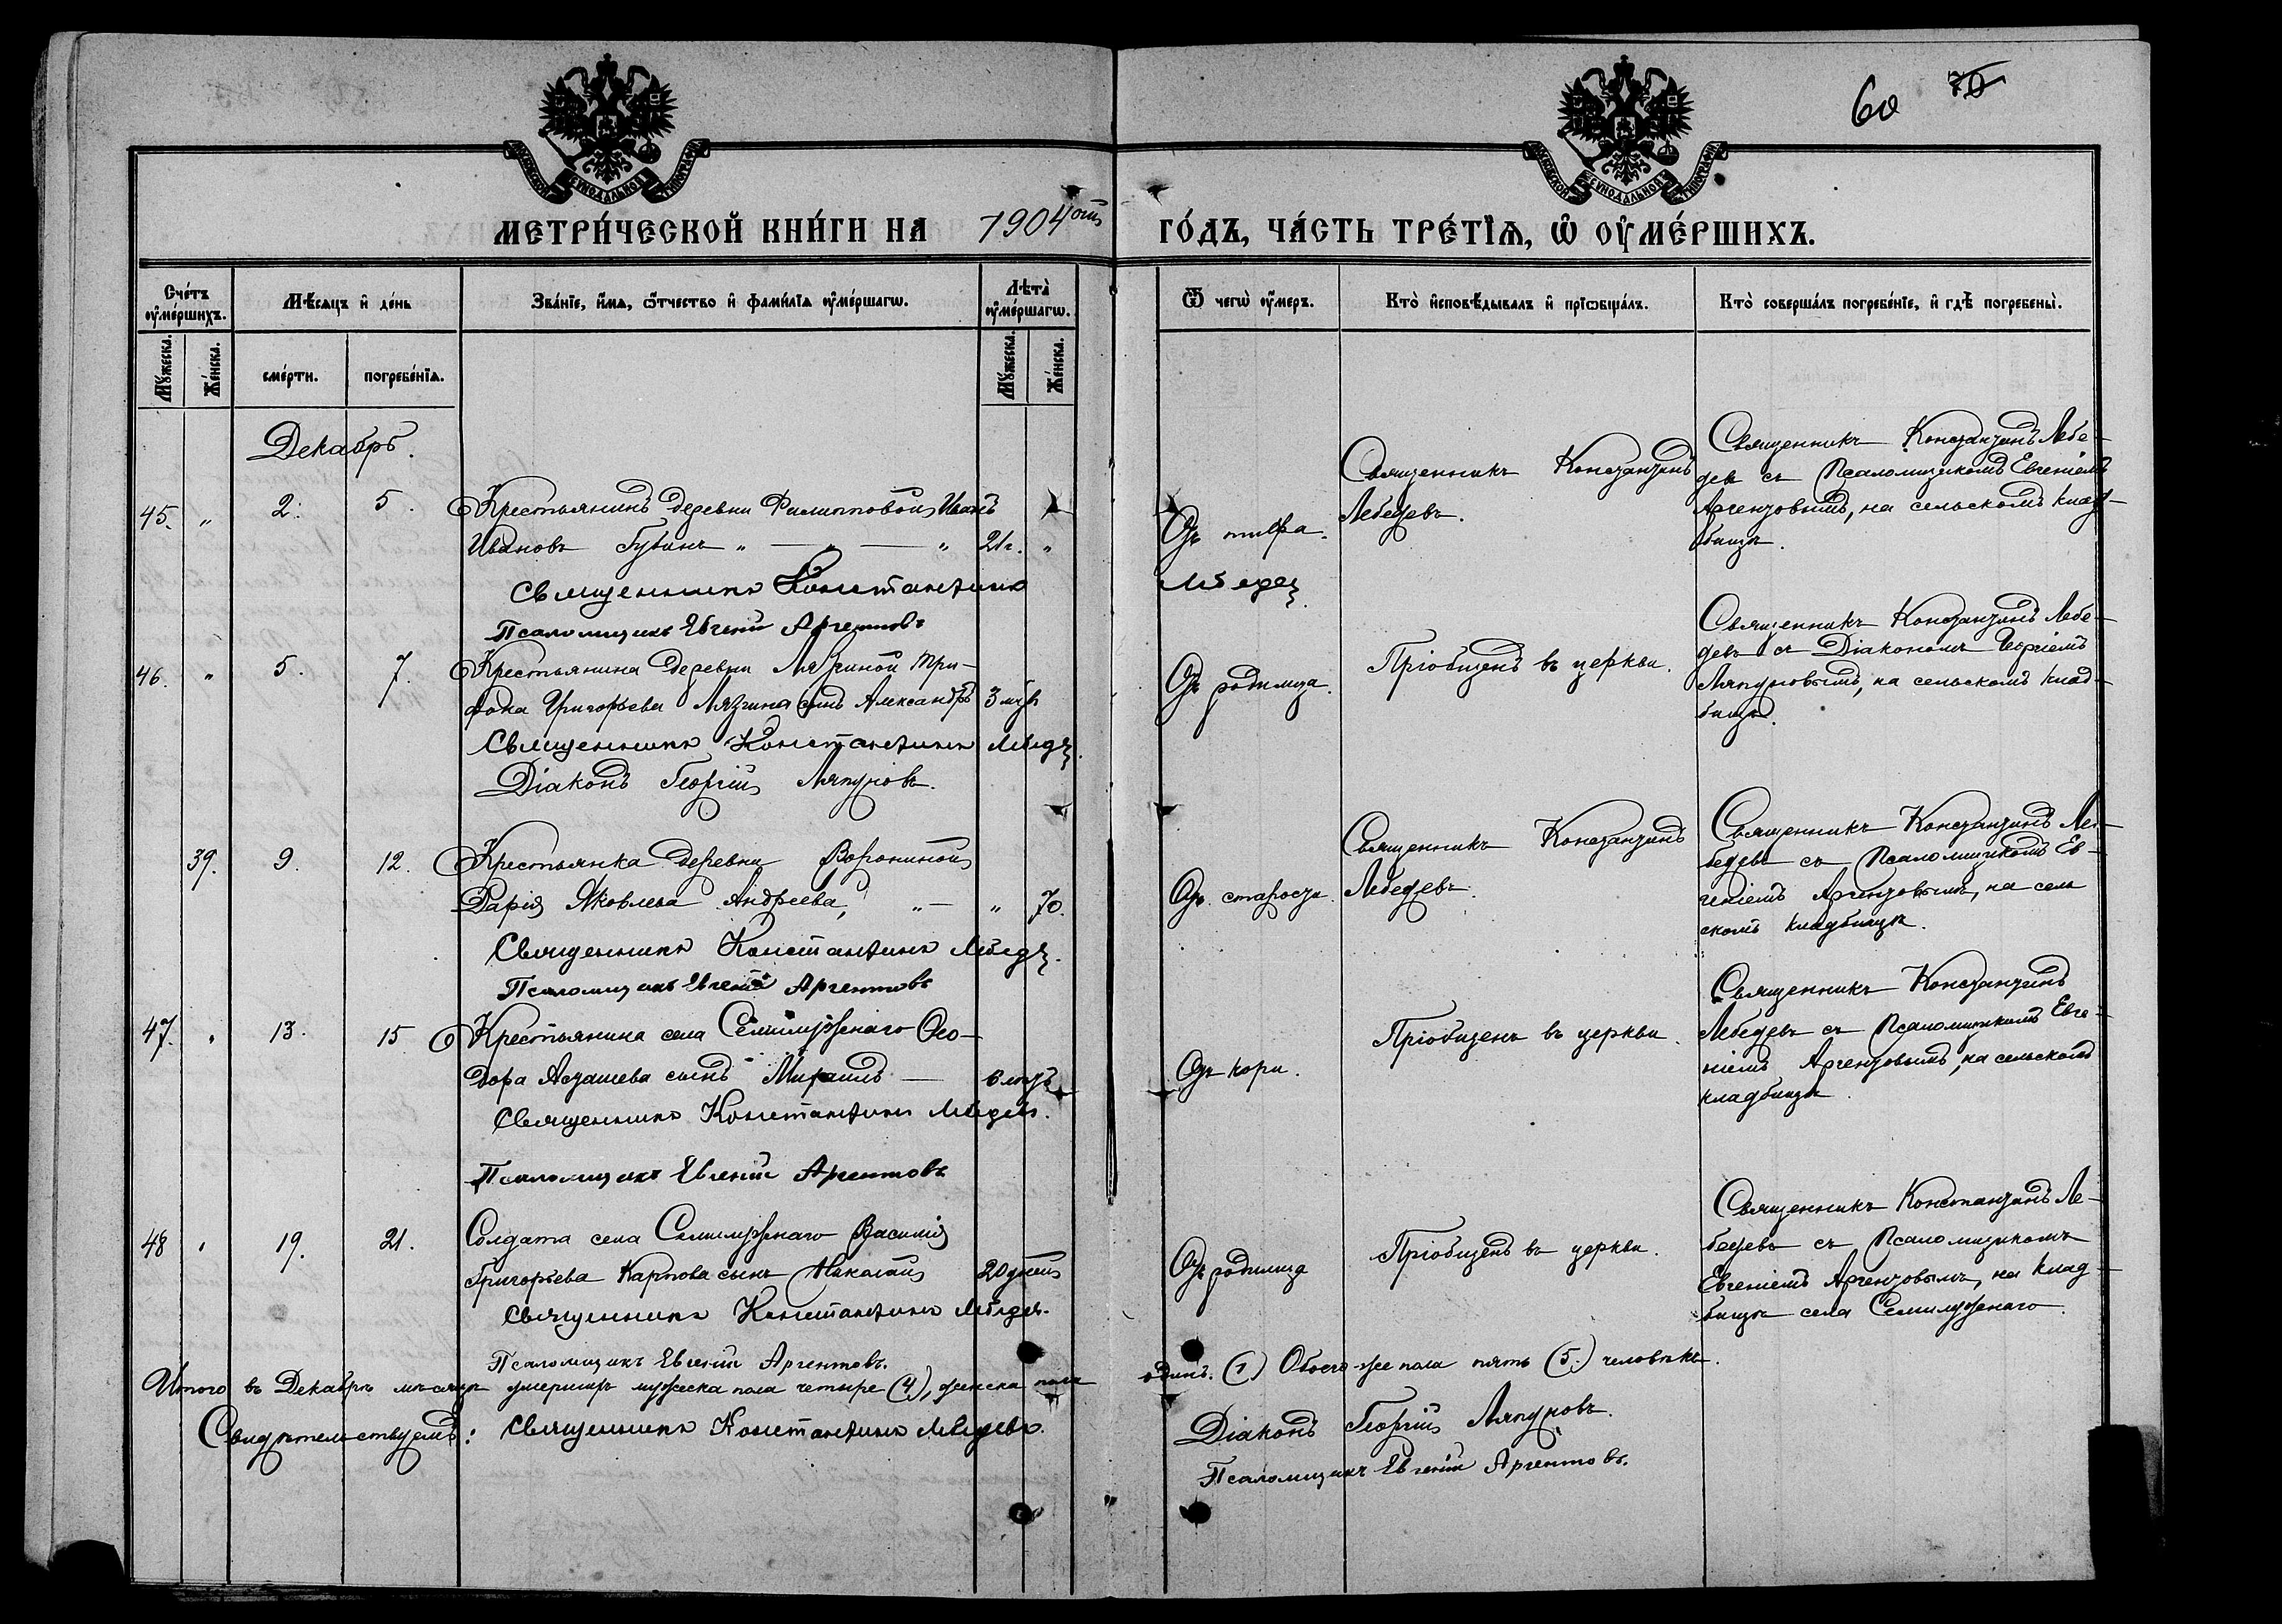 60 70
МЕТРИ́ЧЕСКОЙ КНИ́ГИ НА 1904ый ГО́ДЪ, ЧА́СТЬ ТРЕ́ТІѦ, Ѡ ОУ҆МЕ́РШИХЪ.
Сче́тъ оу҆ме́ршихъ.
Мѣ́сѧцъ и҆ де́нь
Зва́нїе, и҆́мѧ, ѻ҆́тчество и҆ фамѝлїѧ оу҆ме́ршагѡ.
Лѣ́та̀ оу҆ме́ршагѡ.
Ѿ чегѡ̀ оу҆́меръ.
Кто̀ и҆сповѣ́дывалъ и҆ прїѡбща́лъ.
Кто̀ соверша́лъ погребе́нїе, и҆ гдѣ̀ погребены̀.
Мꙋ́жеска.
Же́нска.
сме́рти.
погребе́нїѧ.
Мꙋ́жеска.
Же́нска.
Декабрь.
45. " 2. 5.
Крестьянинъ деревни Филипповой Иванъ
Ивановъ Губинъ " — " — " 21г. "
Священникъ Константинъ Лебедев
Псаломщикъ Евгеній Аргентовъ
Отъ тифа.
Священникъ Константинъ
Лебедевъ.
Священникъ Константинъ Лебе-
девъ съ Псаломщикомъ Евгеніемъ
Аргентовымъ, на сельскомъ клад-
бищѣ.
46. " 5. 7.
Крестьянина деревни Лязгиной Три-
фона Григорьева Лязгина сынъ Александръ 3 мѣс
Священникъ Константинъ Лебедев
Діаконъ Георгій Ляпуновъ.
Отъ родимца.
Пріобщенъ въ церкви.
Священникъ Константинъ Лебе-
девъ съ Діакономъ Георгіемъ
Ляпуновымъ, на сельскомъ клад-
бищѣ.
39. 9. 12.
Крестьянка деревни Ворониной
Дарія Яковлева Андреева, " — " 70.
Священникъ Константинъ Лебедев.
Псаломщикъ Евгеній Аргентовъ
Отъ старости.
Священникъ Константинъ
Лебедевъ.
Священникъ Константинъ Ле-
бедевъ съ Псаломщикомъ Ев-
геніемъ Аргентовымъ, на сель
скомъ кладбищѣ.
47. " 13. 15
Крестьянина села Семилужнаго Ѳео-
дора Асташева сынъ Михаилъ — 6 мѣсъ
Священникъ Константинъ Лебедевъ.
Псаломщикъ Евгеній Аргентовъ
Отъ кори.
Пріобщенъ въ церкви.
Священникъ Константинъ
Лебедевъ съ Псаломщикомъ Евге-
ніемъ Аргентовымъ, на сельскомъ
кладбищѣ.
48 " 19. 21.
Солдата села Семилужнаго Василія
Григорьева Карпова сынъ Николай 20 дней
Священникъ Константинъ Лебедев.
Псаломщикъ Евгеній Аргентовъ.
Отъ родимца
Пріобщенъ въ церкви.
Священникъ Константинъ Ле-
бедевъ съ Псаломщикомъ
Евгеніемъ Аргентовымъ, на клад-
бищѣ села Семилужнаго.
Итого въ Декабрѣ мѣсяцѣ умершихъ мужеска пола четыре (4), женска пола одинъ. (1) Обоего же пола пять (5.) человѣкъ.
Свидѣтельствуемъ: Священникъ Константинъ Лебедевъ.
Діаконъ Георгій Ляпуновъ.
Псаломщикъ Евгеній Аргентовъ.